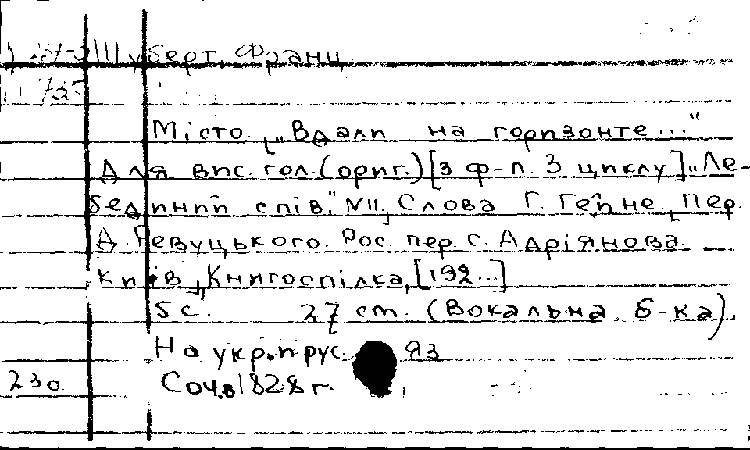 Шуберт, Франц
Місто „Вдали на горизонте..."
Для вис. гол. (ориг.) [з ф-п. З циклу] „Ле-
бединий спів" №11, Слова Г. Гейне, Пер.
Д. Ревуцького. Рос. пер. С. Адріянова.
Київ, Книгоспілка, [192...]
5 с. 27 cm. (Вокальна б-ка).
На укр. и рус. яз
230 Соч. в 1828 г.